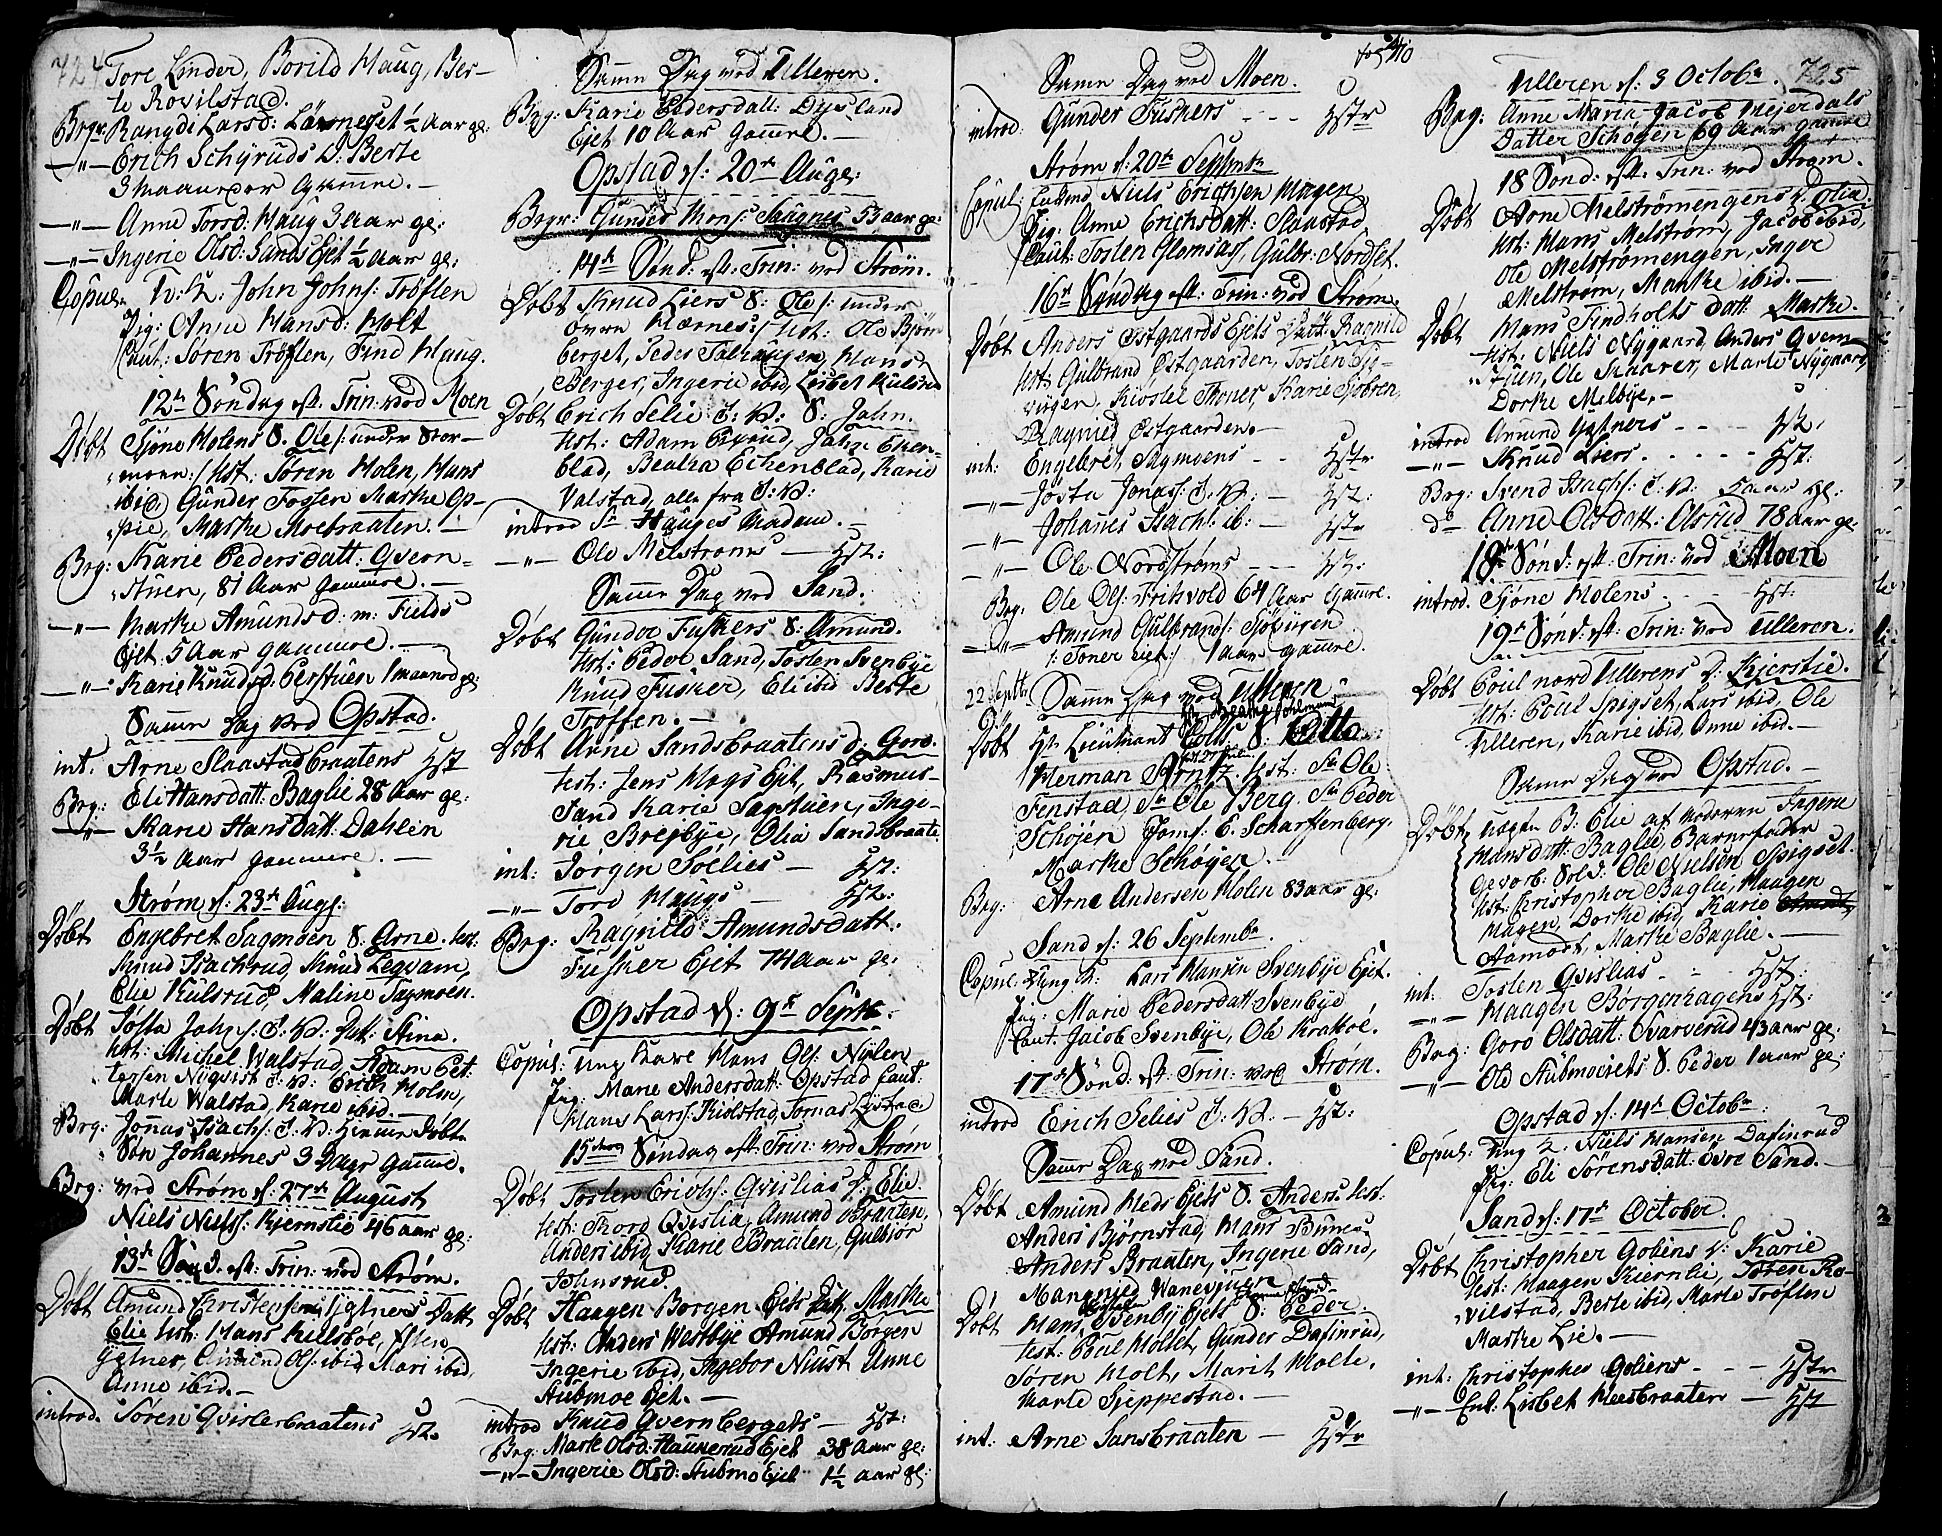 724 Tore Linder, Borild Haug, Ber-
te Rovilstad.
Begr: Rangdi Larsd: Lørneset ½ Aar ge:
—"— Erich Schyruds D: Berte
3 Maaneder Gamme. —
—"— Anne Torsd: Haug 3 Aar ge:
—"— Ingerie Olsd: Sands Ejet ½ Aar ge:
Copul: John Johns: Trøften
Pig: Anne Hansd: Holt
Caut: Søren Trøften, Find Haug.
12te Søndag eft. Trin: ved Moen
Døbt Tjøne Molens S. Ole /: under Stor-
moen :/ test: Søren Molen, Hans
ibid, Gunder Tosten Marthe Op-
Marthe Moebraaten. —
Beg: Karie Pedersdatt: Qvern-
stuen, 81 Aar gammel. —
—"— Marthe Amundsd: m: Fields
Ejet 5 Aar gammel. —
—"— Karie Knudsd: Perstuen 1 maaned ge:
Samme Dag ved Opstad.
int. Arne Slaastadbraatens Hst
Beg: Eli Hansdatt: Baglie 28 Aar ge:
—"— Karie Hansdatt: Dahlen
3½ Aar gammel. —
Strøm d: 23de Aug:
Døbt Engebret Sagmoen S. Arne. test:
Knud Isachrud, Knud Legvam,
Elie Kulsrud, Maline Sagmoen.
Døbt Jøsta Johns: S: V: Datt: Stina.
test: Michel Walstad, Adam Pet-
tersen Nyqvist S: V: Erich Holm,
Marte Walstad, Karie ibid. —
Beg: Jonas Isachs: S: V: hjemme døbt
Søn Johannes 3 Dage Gamme.
Beg: ved Strøm d: 27de August
Niels Niels: Kjernslie 46 aar ge:
13de Sønd. eft. Trin: ved Strøm.
Døbt Amund Christensen Ygtners Datt
Elie test: Hans Killebøe, Even
Ygtner, Amund Ols: ibid, Mari ibid,
Anne ibid. —
introd. Søren Qvislerbraatens Hst.
Samme Dag ved Ulleren.
Beg: Karie Pedersdatt: Dysland
Ejet 10 Aar Gamme. —
Opstad d: 20de Aug:
Begr: Gunder Mons: Saugnes 53 aar ge:
14de Sønd: eft: Trin: ved Strøm.
Døbt Knud Liers S: Ole /: under
øvre Hærnes :/ test: Ole Bjørn
berget, Peder Talhaugen, Hans
Berger, Ingerie ibid, Lisbet Kulsrud
Døbt Erich Selie S: V: S: John.
test: Adam John Eken-
blad, Beatha Eckenblad, Karie
Valstad, alle fra S: V:
introd Sr Hauges Madame. —
—"— Ole Melstrøms — Hst:
Samme Dag ved Sand.
Døbt Gunder Fuskers S: Amund.
test: Peder Sand, Tosten Svenbye
Knud Fusker, Eli ibid Berte
Trøften. —
Døbt Arne Sandsbraatens D. Goro.
test: Jens Hags Ejet, Rasmus
Sand Karie Sagstuen, Inge-
rie Bregbye, Olia Sandsbraaten
int: Jørgen Søelies — Hst:
—"— Tore Haugs — Hst:
Beg: Ragnild Amundsdatt:
Fusker Ejet 74 aar ge:
Opstad d: 9de Septbr.
Copul: Ung Karl Hans Ols: Nylen
Pig: Marie Andersdatt: Opstad Caut:
Hans Lars: Kiolstad, Tomas Lystad.
15de Søndag eft: Trin: ved Strøm
Døbt Tosten Erichs: Qvislias D: Elie.
test: Thord Qvislia, Amund Braaten,
Anders ibid, Karie Braaten, Gulbiør
Johnsrud.
Døbt Haagen Børgen Ejets Datt. Marthe
test: Anders Westbye Amund Børgen
Ingerie ibid, Ingebor Niust Anne
Stubmoe Ejet. —
introd Knud Qvernbergets — Hst:
Beg: Marte Olsd: Haunerud Ejet 38 Aar ge:
—"— Ingerie Olsd: Stubmo Ejet 1½ aar ge:
Samme Dag ved Moen.
introd: Gunder Fuskers - - - Hstr
Strøm d: 20de Septembr
Copul: Enkem Niels Erichsen Magen
Pig: Anne Erichsdatt: Slaastad
Caut: Tosten Glomsaas, Gulbr: Nordset.
16de Søndag eft: Trin: ved Strøm.
Døbt Anders Østgaards Ejets Datt: Ragnild
test: Gulbrand Østgaarden, Tosten Sig-
Kiostel Thoner, Karie Sjøbren,
Ragnild Østgaarden. —
int: Engebret Sagmoens - - Hstr
—"— Jøsta Jonas: S: V: — Hst:
—"— Johanes Isach: ib: — Hstr
—"— Ole Nordstrøms - - - Hst:
Beg: Ole Ols: Frihvold 64 Aar Gamme.
—"— Amund Gulbrands: Sjøburen
/: Toner eiet :/ 1 Aar gamme.
22 Septbr Samme Dag ved Ulleren
Døbt Hr Lieutnant Coll's S: Otto
Herman Arntz. test: Sr Ole
Fenstad, Sr Ole Berg. Sr Peder
Schøjen Jomf: E. Scharffenberg,
Marthe Schøyen. —
Beg: Arne Andersen Molen 83 aar ge:
Sand d: 26 Septembr.
Copul. Ung K. Lars Hansen Svenbye Ejet.
Pig: Marie Pedersdatt: Svenbye
Caut. Jacob Svenbye, Ole Krakoe.
17de Sønd: eft: Trin: ved Strøm.
introd Erich Selies S: V: — Hst:
Samme Dag ved Sand.
Døbt Amund Meds Ejets S. Anders. test.
Anders Bjørnstad, Hans
Anders Braaten, Ingerie Sand,
Magnild
Døbt Hans Svenbye Ejets S: Peder.
test: Poul Holtet, Gunder Dafinrud,
Søren Holt, Marit Holte,
Marte Sjeppestad. —
int: Arne Sansbraaten — Hstr
Ulleren d: 3 Octobr. 725
Beg: Anne Maria Jacob Mejerdals
Datter Schøyen 69 Aar gamme
18 Sønd: eft: Trin: ved Strøm.
Døbt Arne Melstrømengens D. Olia.
test: Hans Melstrøm, Jacob ibid,
Ole Melstrømengen, Inger
Melstrøm, Marthe ibid. —
Døbt Hans Findholts datt: Marthe.
test: Niels Nygaard, Anders Qvern-
stuen, Ole Skaarer, Marte Nygaard,
Dorthe Melbye. —
introd Amund Ygtners - - - - Hst.
—"— Knud Liers. - - - - - Hst:
Beg: Svend Isachs: S: V: aar ge:
do Anne Olsdatt: Olsrud 78 aar ge:
18de Sønd: eft: Trin: ved Moen
introd. Tjøne Molens - - - - Hst:
19de Sønd: eft: Trin: ved Ulleren.
Døbt Poul nord Ullerens D: Kierstie.
test: Poul Spigset, Lars ibid, Ole
Ulleren, Karie ibid, Anne ibid. —
Samme Dag ved Opstad. —
Døbt uægte B: Elie af Moderen Ingerie
Hansdatt: Baglie, Barnefader
Gevorb: Sold: Ole Nielsen Spigset.
test: Christopher Baglie, Haagen
Magen, Dorthe ibid, Karie
Aamodt, Marthe Baglie. —
int: Tosten Qvislias - - Hst:
—"— Haagen Børgenhagens Hst:
Beg: Goro Olsdatt: Svarverud 43 aar ge:
—"— Ole Stubmoeiets S. Peder 1 aar ge:
Opstad d: 14de Octobr
Copul: Ung K. Niels Hansen Dafinrud
Pig: Eli Sørensdatt: øvre Sand. —
Sand d: 17de October.
Døbt Christopher Goliens D: Karie
test: Haagen Kiernlie, Søren Ro-
vilstad, Berte ibid, Marte Trøften
Marthe Lie. —
int: Christopher Goliens - - - Hstr
—"— Enk: Lisbet Meesbraaten — Hst